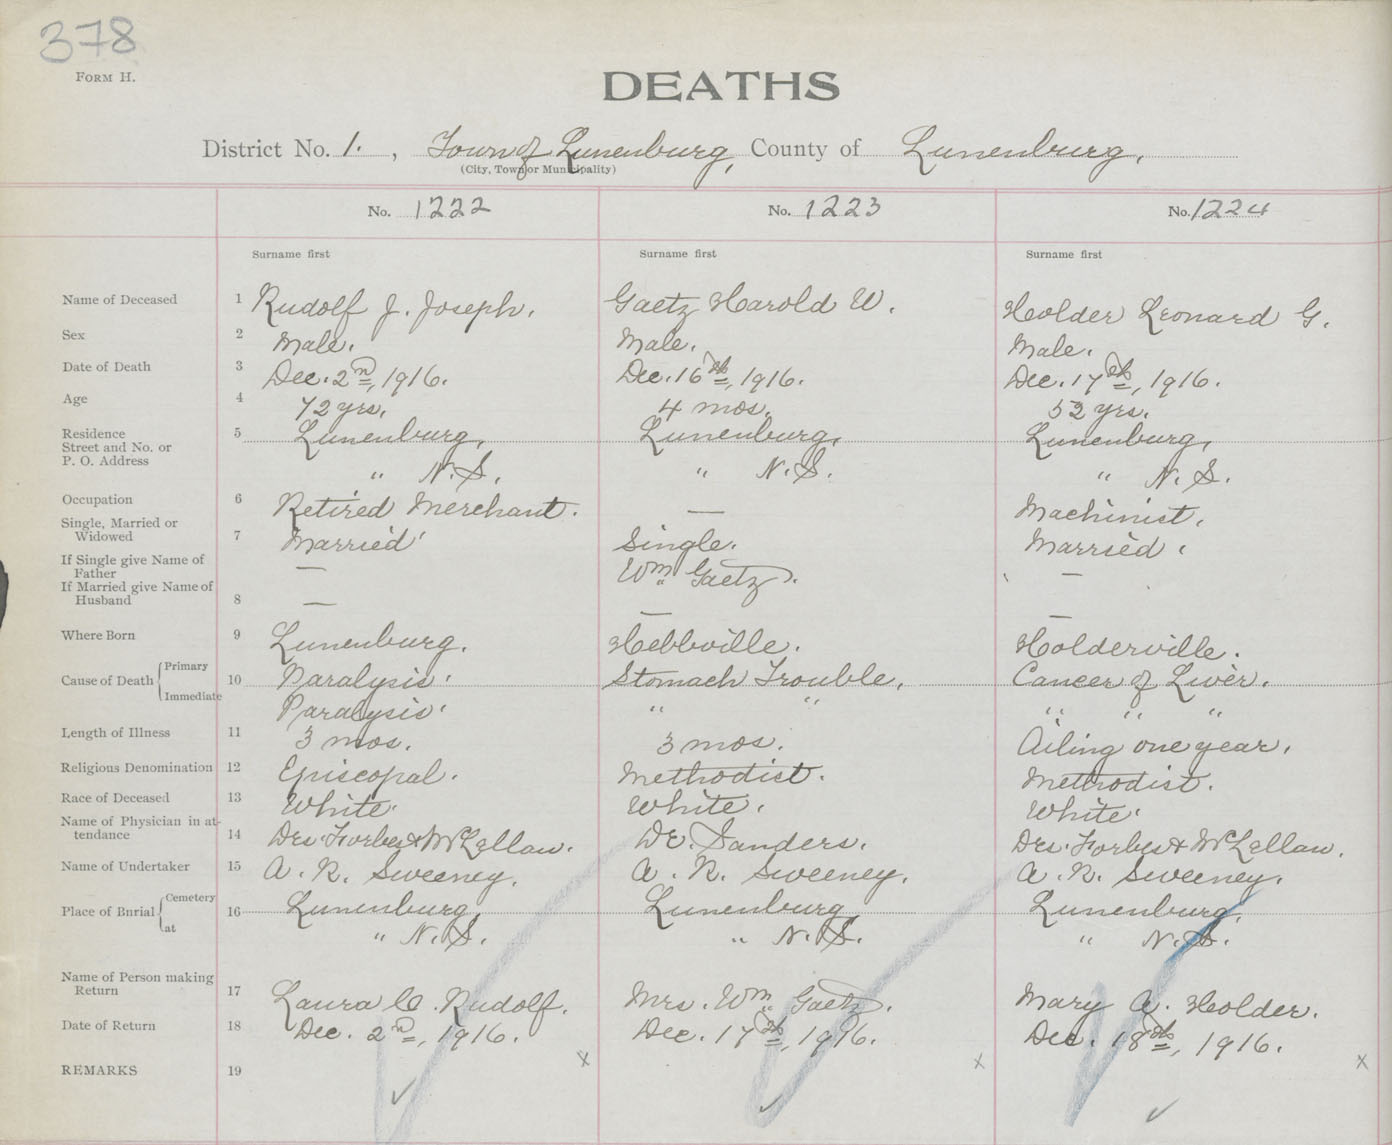 378
FORM H.
DEATHS
District No. 1. , Town of Lunenburg, County of Lunenburg,
(City, Town or Municipality)
No. 1222 No. 1223 No. 1224
Surname first Surname first Surname first
Name of Deceased 1 Rudolf J. Joseph. Gaetz Harold W. Holder Leonard G.
Sex 2 Male. Male. Male.
Date of Death 3 Dec. 2nd, 1916. Dec. 16th, 1916. Dec. 17th, 1916.
Age 4 72 yrs. 4 mos. 52 yrs.
Residence 5 Lunenburg, Lunenburg, Lunenburg,
Street and No. or
P. O. Address " N.S. " N.S. " N.S.
Occupation 6 Retired Merchant. — Machinist.
Single, Married or
Widowed 7 Married Single. Married.
If Single give Name of
Father — Wm Gaetz. —
If Married give Name of
Husband 8 — — —
Where Born 9 Lunenburg. Hebbville. Holderville.
Cause of Death Primary 10 Paralysis. Stomach Trouble. Cancer of Liver.
Immediate Paralysis. " " " " "
Length of Illness 11 3 mos. 3 mos. Ailing one year.
Religious Denomination 12 Episcopal. Methodist. Methodist.
Race of Deceased 13 White. White. White.
Name of Physician in at-
tendance 14 Drs. Forbes & McLellan. Dr. Sanders. Drs. Forbes & McLellan.
Name of Undertaker 15 A. R. Sweeney. A. R. Sweeney. A. R. Sweeney.
Place of Burial Cemetery 16 Lunenburg, Lunenburg, Lunenburg,
at " N.S. " N.S. " N.S.
Name of Person making
Return 17 Laura C. Rudolf. Mrs. Wm Gaetz. Mary A. Holder.
Date of Return 18 Dec. 2nd, 1916. Dec. 17th, 1916. Dec. 18th, 1916.
REMARKS 19 x x x